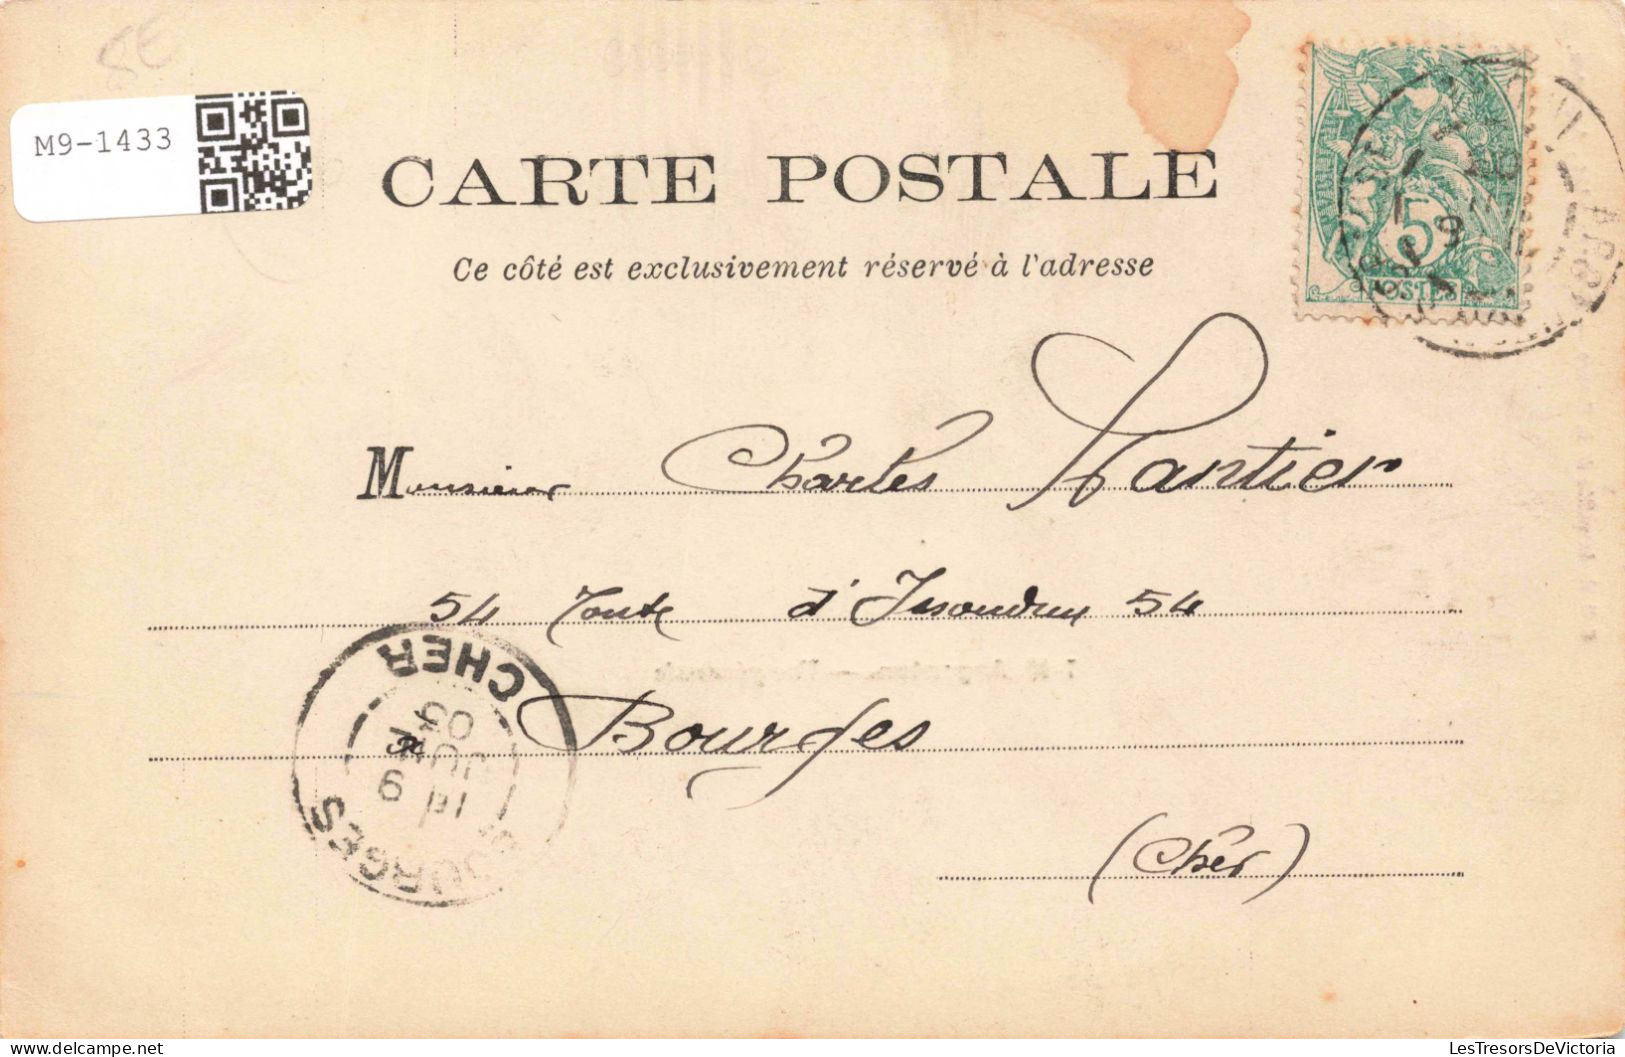 8E
M9-1433
CARTE POSTALE
Ce côté est exclusivement réservé à l'adresse
5
POSTES
Monsieur Charles Nantier
54 Route d'Issoudun 54
Bourges
(Cher)
BOURGES
CHER
9
JUIL
03
LesTresorsDeVictoria
www.delcampe.net